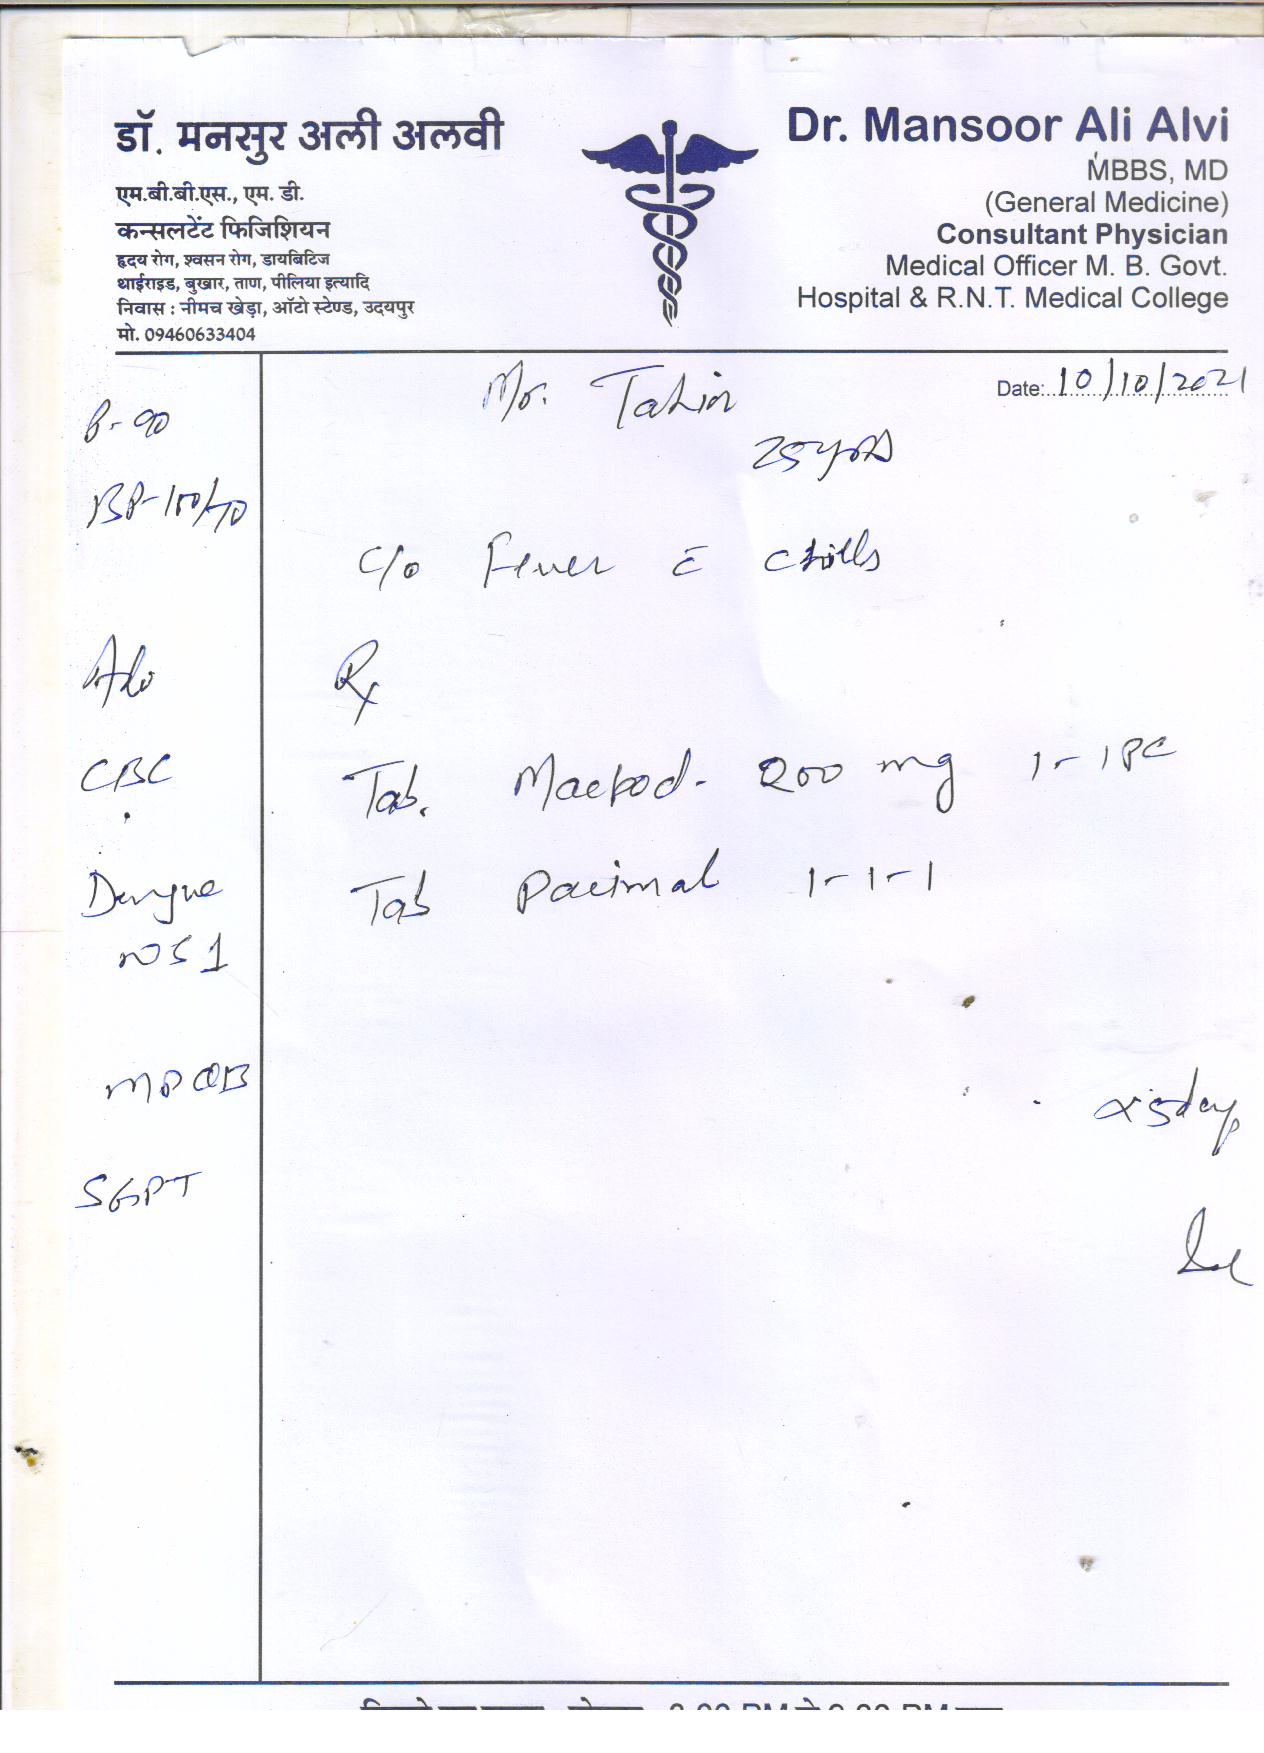 डॉ. मनसुर अली अलवी
एम.बी.बी.एस., एम. डी.
कन्सलटेंट फिजिशियन
हृदय रोग, श्वसन रोग, डायबिटिज
थाईराइड, बुखार, ताण, पीलिया इत्यादि
निवास : नीमच खेड़ा, ऑटो स्टेण्ड, उदयपुर
मो. 09460633404
Dr. Mansoor Ali Alvi
MBBS, MD
(General Medicine)
Consultant Physician
Medical Officer M. B. Govt.
Hospital & R.N.T. Medical College
Date: 10/10/2021
Mr.
25 yrs
C/o Fever c̄ chills
Rx
Tab. 200 mg 1-1 PC
Tab Pacimal 1-1-1
x 5 day
90
BP-
Adv
CBC
Dengue
NS1
MPQB
SGPT